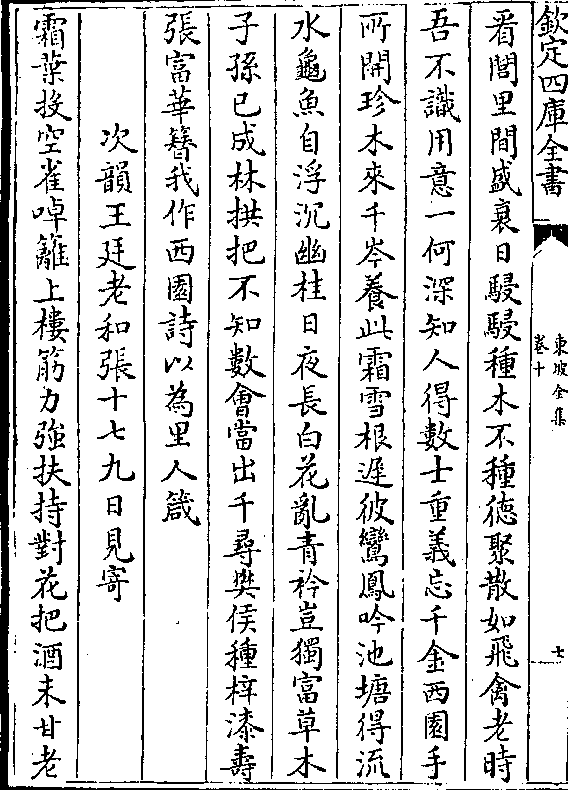 欽定四庫全書
東坡全集
卷十
七
看閭里間盛衰日駸駸種木不種徳聚散如飛禽老時
吾不識用意一何深知人得數士重義忘千金西園手
所開珍木來千岑養此霜雪根遲彼鸞鳳吟池塘得流
水龜魚自浮沉幽桂日夜長白花亂青衿豈獨富草木
子孫已成林拱把不知數㑹當出千尋樊侯種梓漆壽
張富華簪我作西園詩以為里人箴
次韻王廷老和張十七九日見寄
霜葉投空雀啅籬上樓筋力強扶持對花把酒未甘老